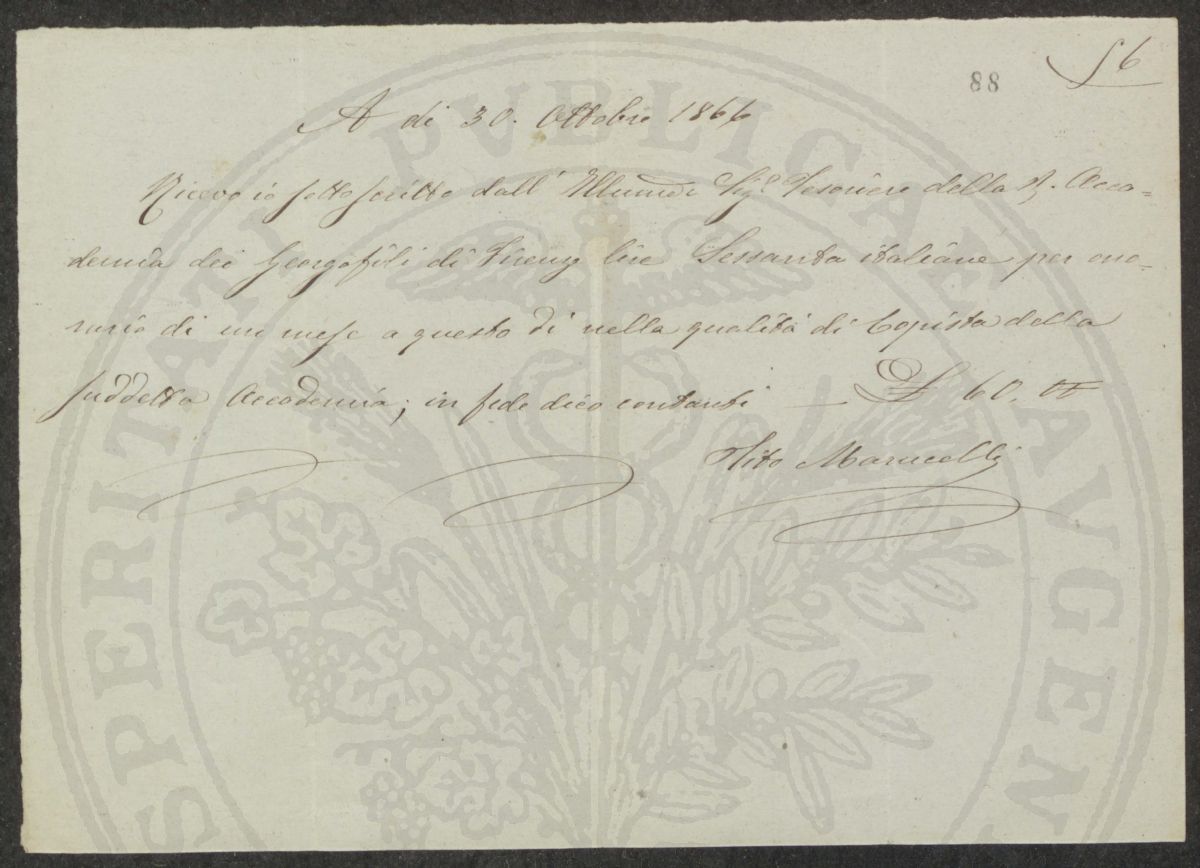 56
88
A di 30. Ottobre 1866
Ricevo io sottoscritto dall' Sigr Tesoriere della R. Acca=
demia dei Georgofili di Firenze lire Sessanta italiane per ono=
rario di un mese a questo dì nella qualità di Copista della
suddetta Accademia; in fede dico contanti — £ 60. "
Tito Marucelli
PROSPERITATI PVBLICAE AVGENDAE